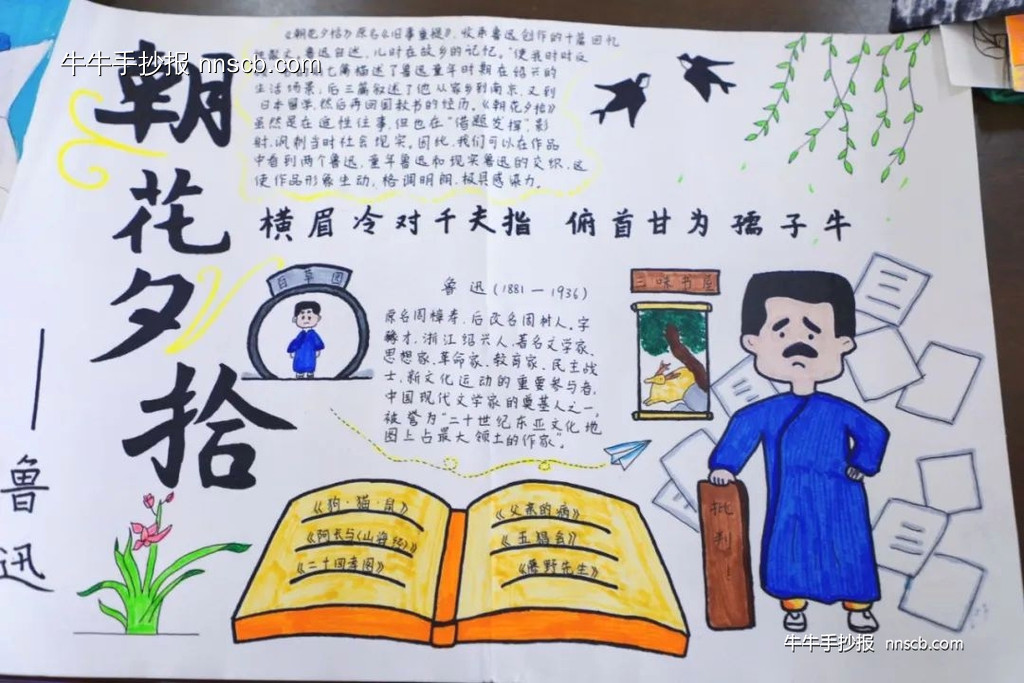 牛牛手抄报 nnscb.com
朝花夕拾
——鲁迅
《朝花夕拾》原名《旧事重提》,收录鲁迅创作的十篇回忆
散文。鲁迅自述,儿时在故乡的记忆。"使我时时反
七篇描述了鲁迅童年时期在绍兴的
生活场景,后三篇叙述了他从家乡到南京,又到
日本留学,然后再回国教书的经历。《朝花夕拾》
虽然是在追性往事,但也在"借题发挥",影
射,讽刺当时社会现实。因此,我们可以在作品
中看到两个鲁迅,童年鲁迅和现实鲁迅的交织,这
使作品形象生动,格调明朗,极具感染力。
横眉冷对千夫指 俯首甘为孺子牛
百草园
鲁迅(1881—1936)
原名周樟寿,后改名周树人。字
豫才,浙江绍兴人,著名文学家、
思想家、革命家、教育家、民主战
士,新文化运动的重要参与者,
中国现代文学家的奠基人之一,
被誉为"二十世纪东亚文化地
图上占最大领土的作家"。
三味书屋
《狗·猫·鼠》
《阿长与〈山海经〉》
《二十四孝图》
《父亲的病》
《五猖会》
《藤野先生》
批
判
!
牛牛手抄报 nnscb.com